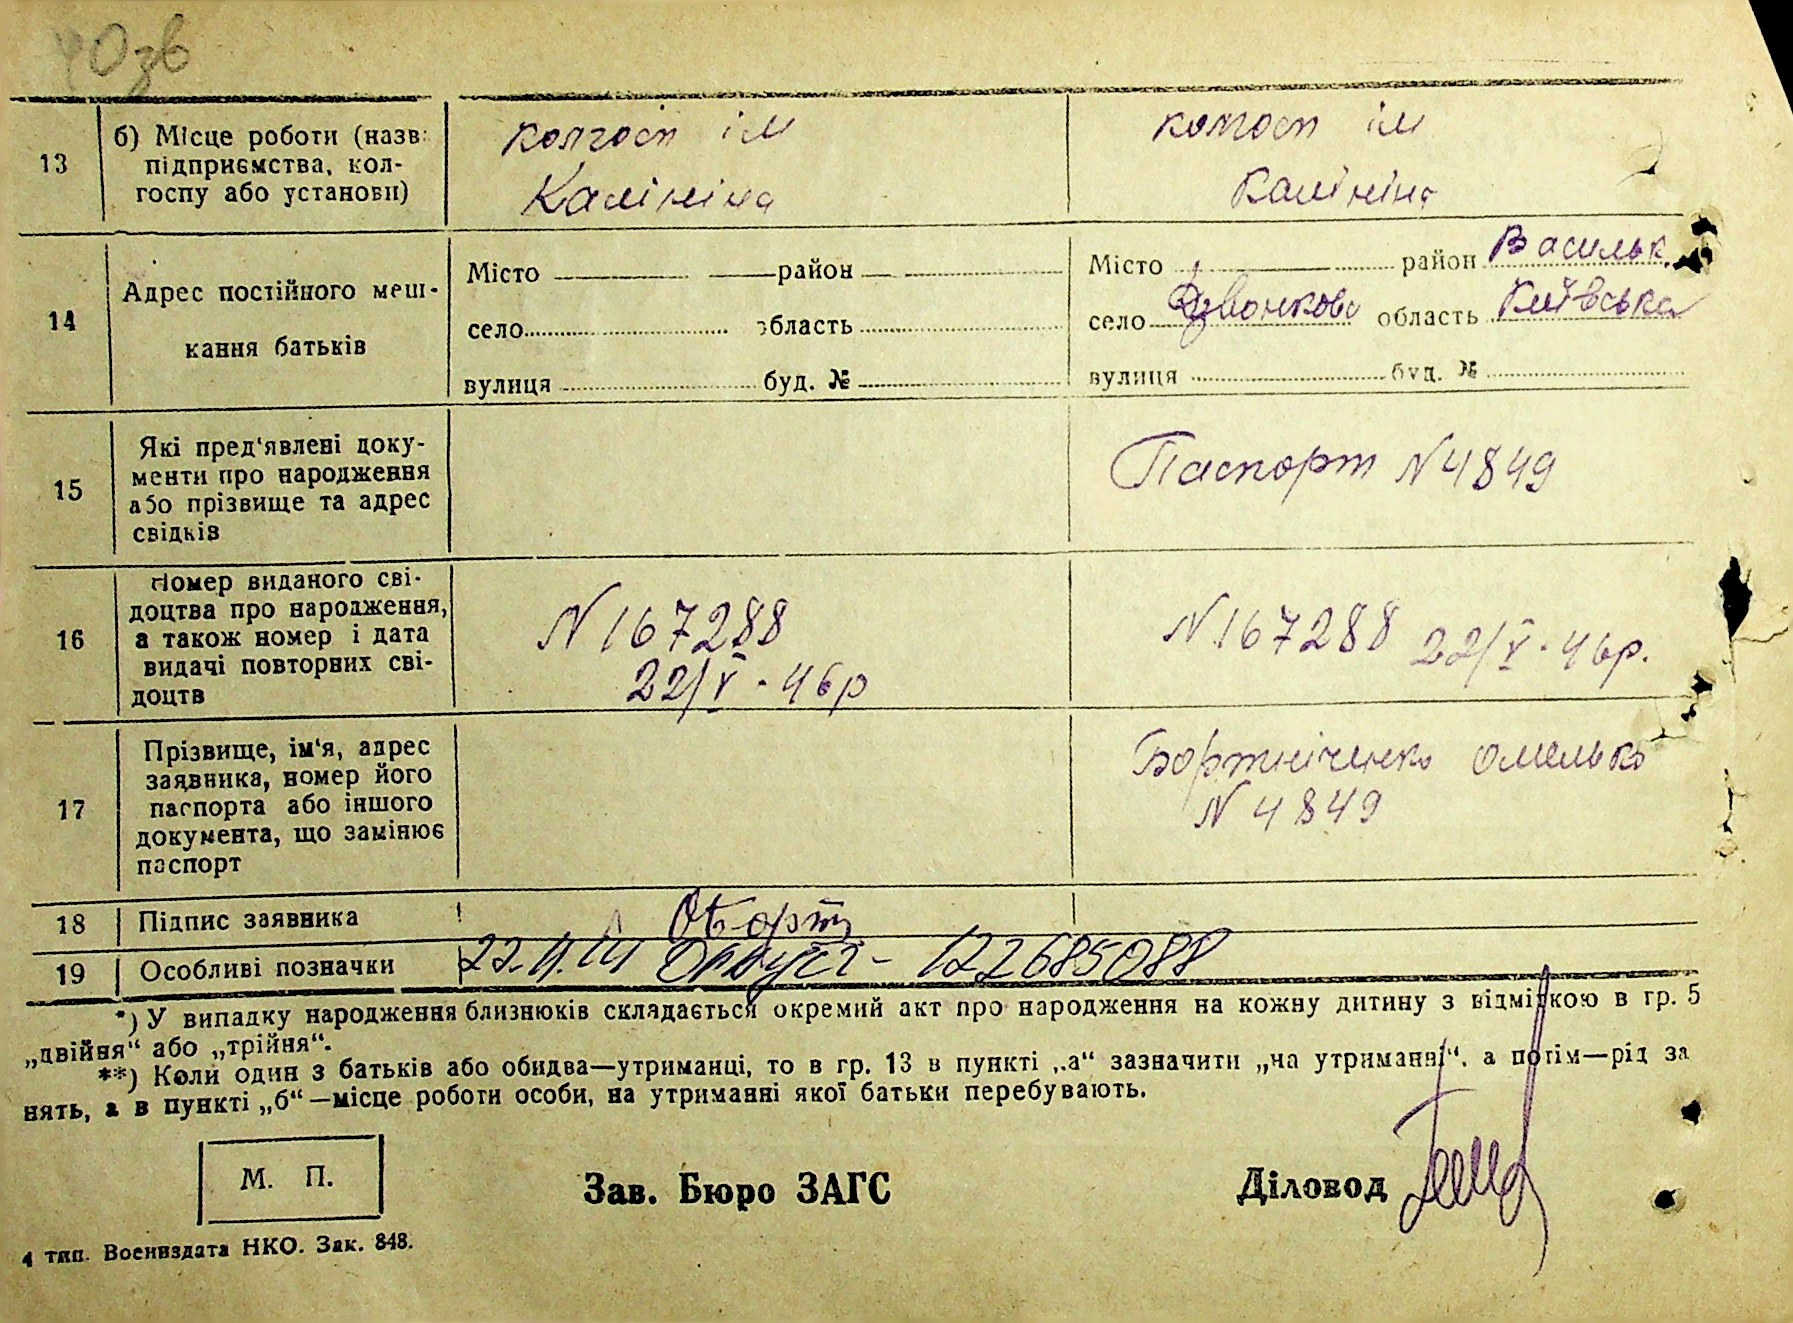 40зв
13
б) Місце роботи (назв:
підприємства, кол-
госпу або установи)
колгосп ім
Калініна
колгосп ім
Калініна
14
Адрес постійного меш-
кання батьків
Місто район
село область
вулиця буд. №
Місто район Васильк.
село Дзвонкове область Київська
вулиця буд. №
15
Які пред'явлені доку-
менти про народження
або прізвище та адрес
свідків
Паспорт N 4849
16
Номер виданого сві-
доцтва про народження,
а також номер і дата
видачі повторних сві-
доцтв
N 167288
22/V - 46р
N 167288 22/V - 46р.
17
Прізвище, ім'я, адрес
заявника, номер його
паспорта або іншого
документа, що замінює
паспорт
Бортніченко Омелько
N 4849
18
Підпис заявника
19
Особливі позначки
122685088
*) У випадку народження близнюків складається окремий акт про народження на кожну дитину з відміткою в гр. 5
„двійня“ або „трійня“.
**) Коли один з батьків або обидва—утриманці, то в гр. 13 в пункті „а“ зазначити „на утриманні“, а потім—рід за
нять, а в пункті „б“—місце роботи особи, на утриманні якої батьки перебувають.
М. П.
Зав. Бюро ЗАГС
Діловод
4 тип. Воениздата НКО. Зак. 848.